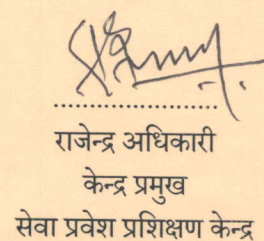 ....................
राजेन्द्र अधिकारी
केन्द्र प्रमुख
सेवा प्रवेश प्रशिक्षण केन्द्र